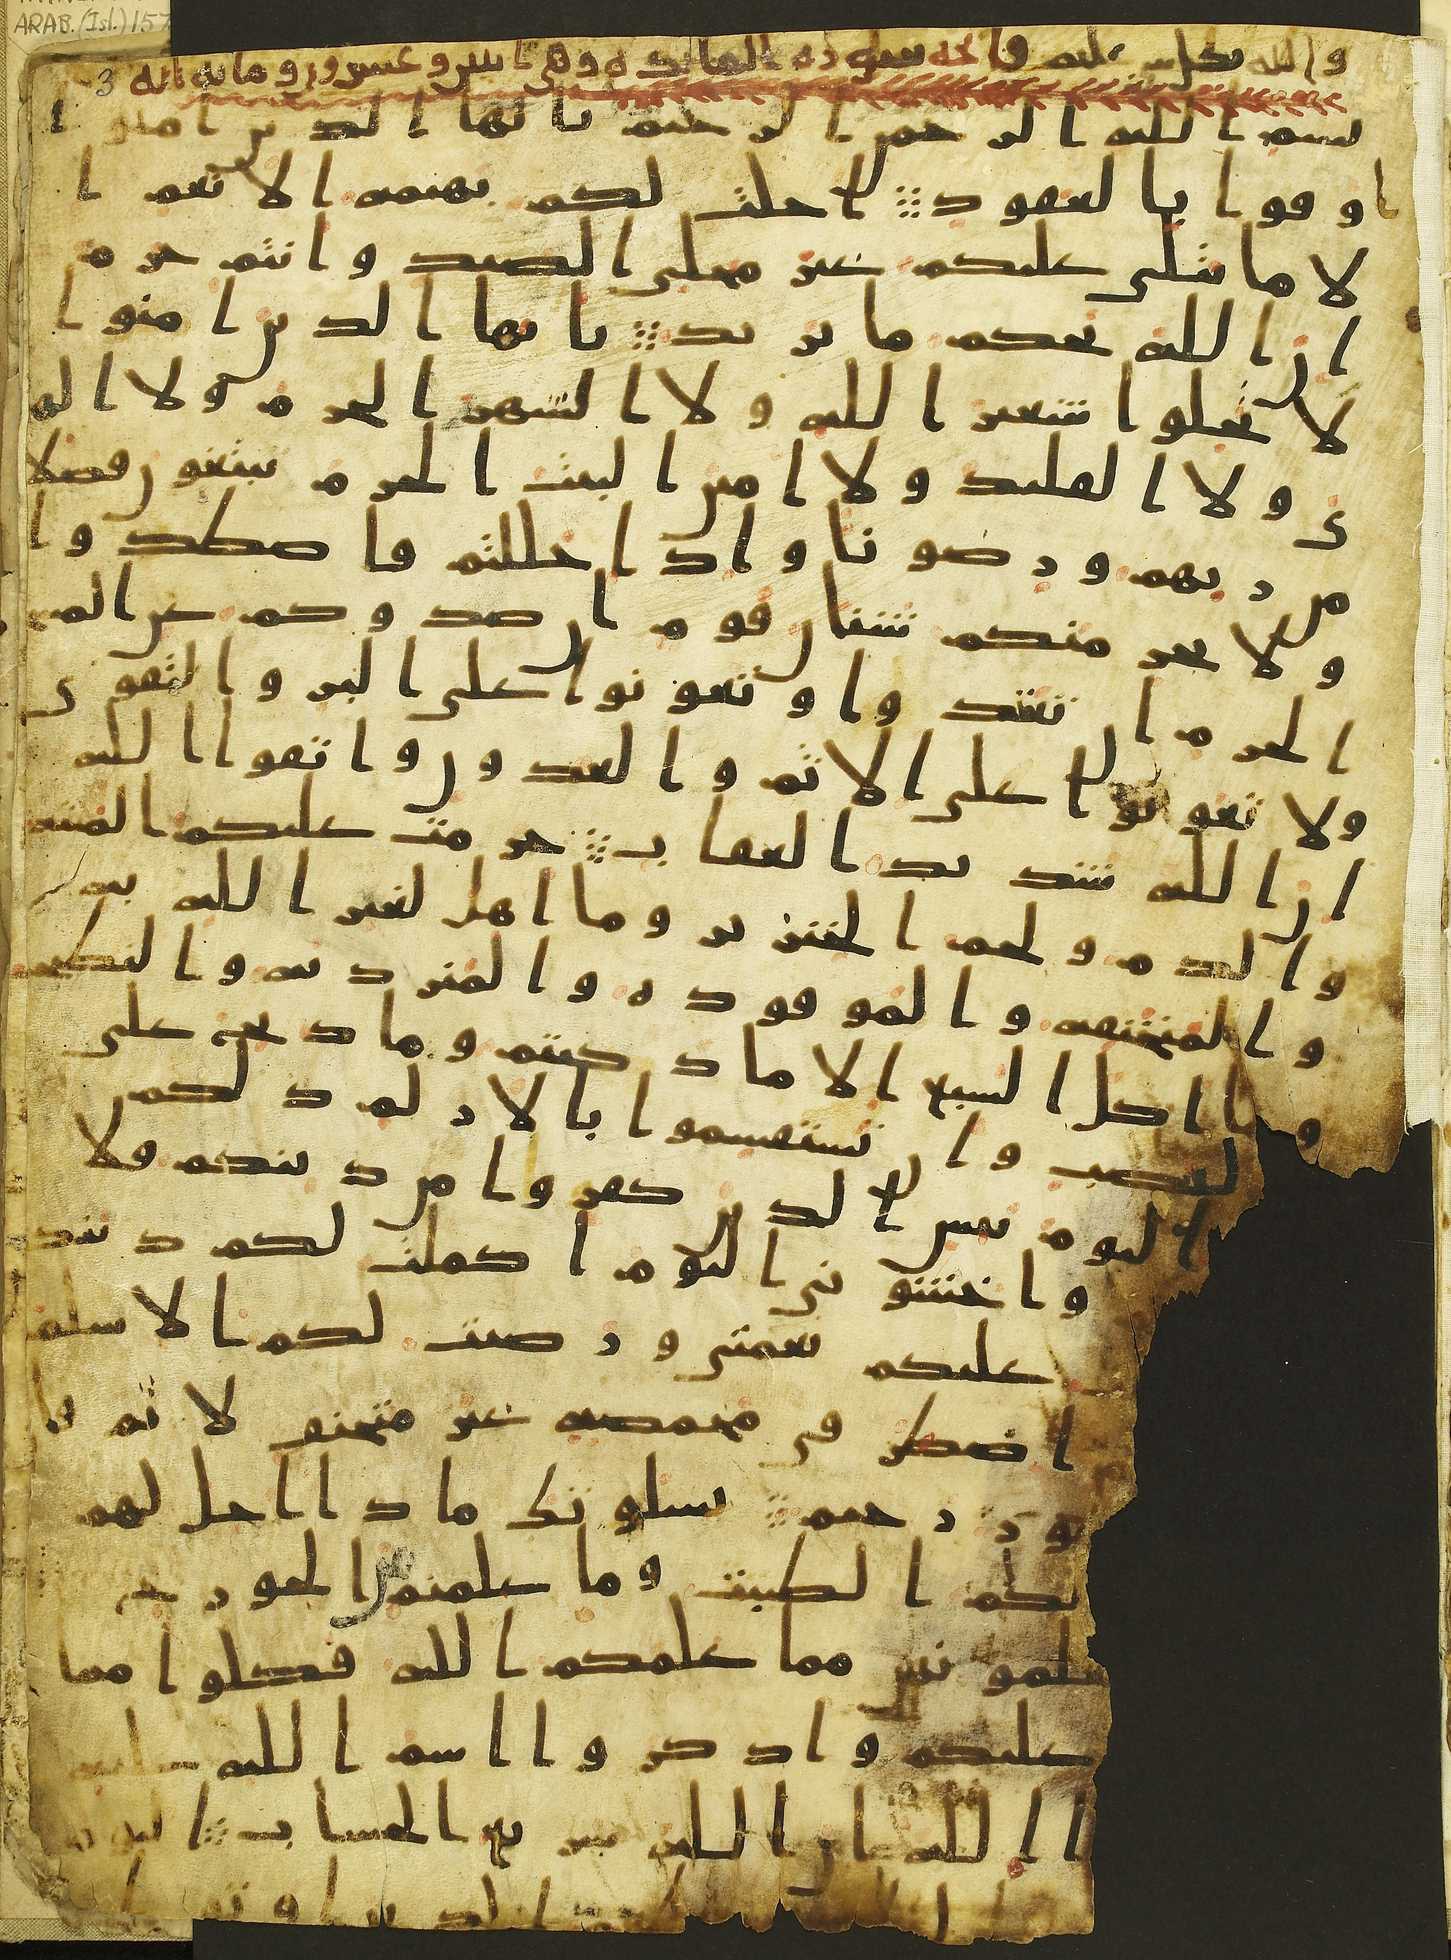 ARAB. (Isl.) 157
3
والله بكل شى عليم فاتحه سوره المايده وهى اثنين وعشرون ومايه ايه
بسم الله الرحمن الرحيم يايها الذين امنوا
اوفوا بالعقود احلت لكم بهيمه الانعم ا
لا ما يتلى عليكم غير محلى الصيد وانتم حرم
ان الله يحكم ما يريد يايها الذين امنوا
لا تحلوا شعير الله ولا الشهر الحرم ولا الهد
ى ولا القليد ولا امين البيت الحرم يبتغون فضلا
من ربهم ورضونا واذا حللتم فاصطدوا
ولا يجرمنكم شنان قوم ان صدوكم عن المسجد
الحرم ان تعتدوا وتعونوا على البر والتقوى
ولا تعونوا على الاثم والعدون واتقوا الله
ان الله شديد العقاب حرمت عليكم الميته
والدم ولحم الخنزير وما اهل لغير الله به
والمنخنقه والموقوذه والمتردیه والنطيحه
وما اكل السبع الا ما ذكيتم وما ذبح على
النصب وان تستقسموا بالازلم ذلكم
اليوم يئس الذين كفروا من دينكم فلا
واخشونى اليوم اكملت لكم دينكم
عليكم نعمتى ورضيت لكم الاسلم
اضطر فى مخمصه غير متجنف لاثم فا
غفور رحيم يسلونك ماذا احل لهم
لكم الطيبت وما علمتم من الجورح
تعلمونهن مما علمكم الله فكلوا مما
عليكم واذكروا اسم الله عليه
ا الله ان الله سريع الحساب اليوم